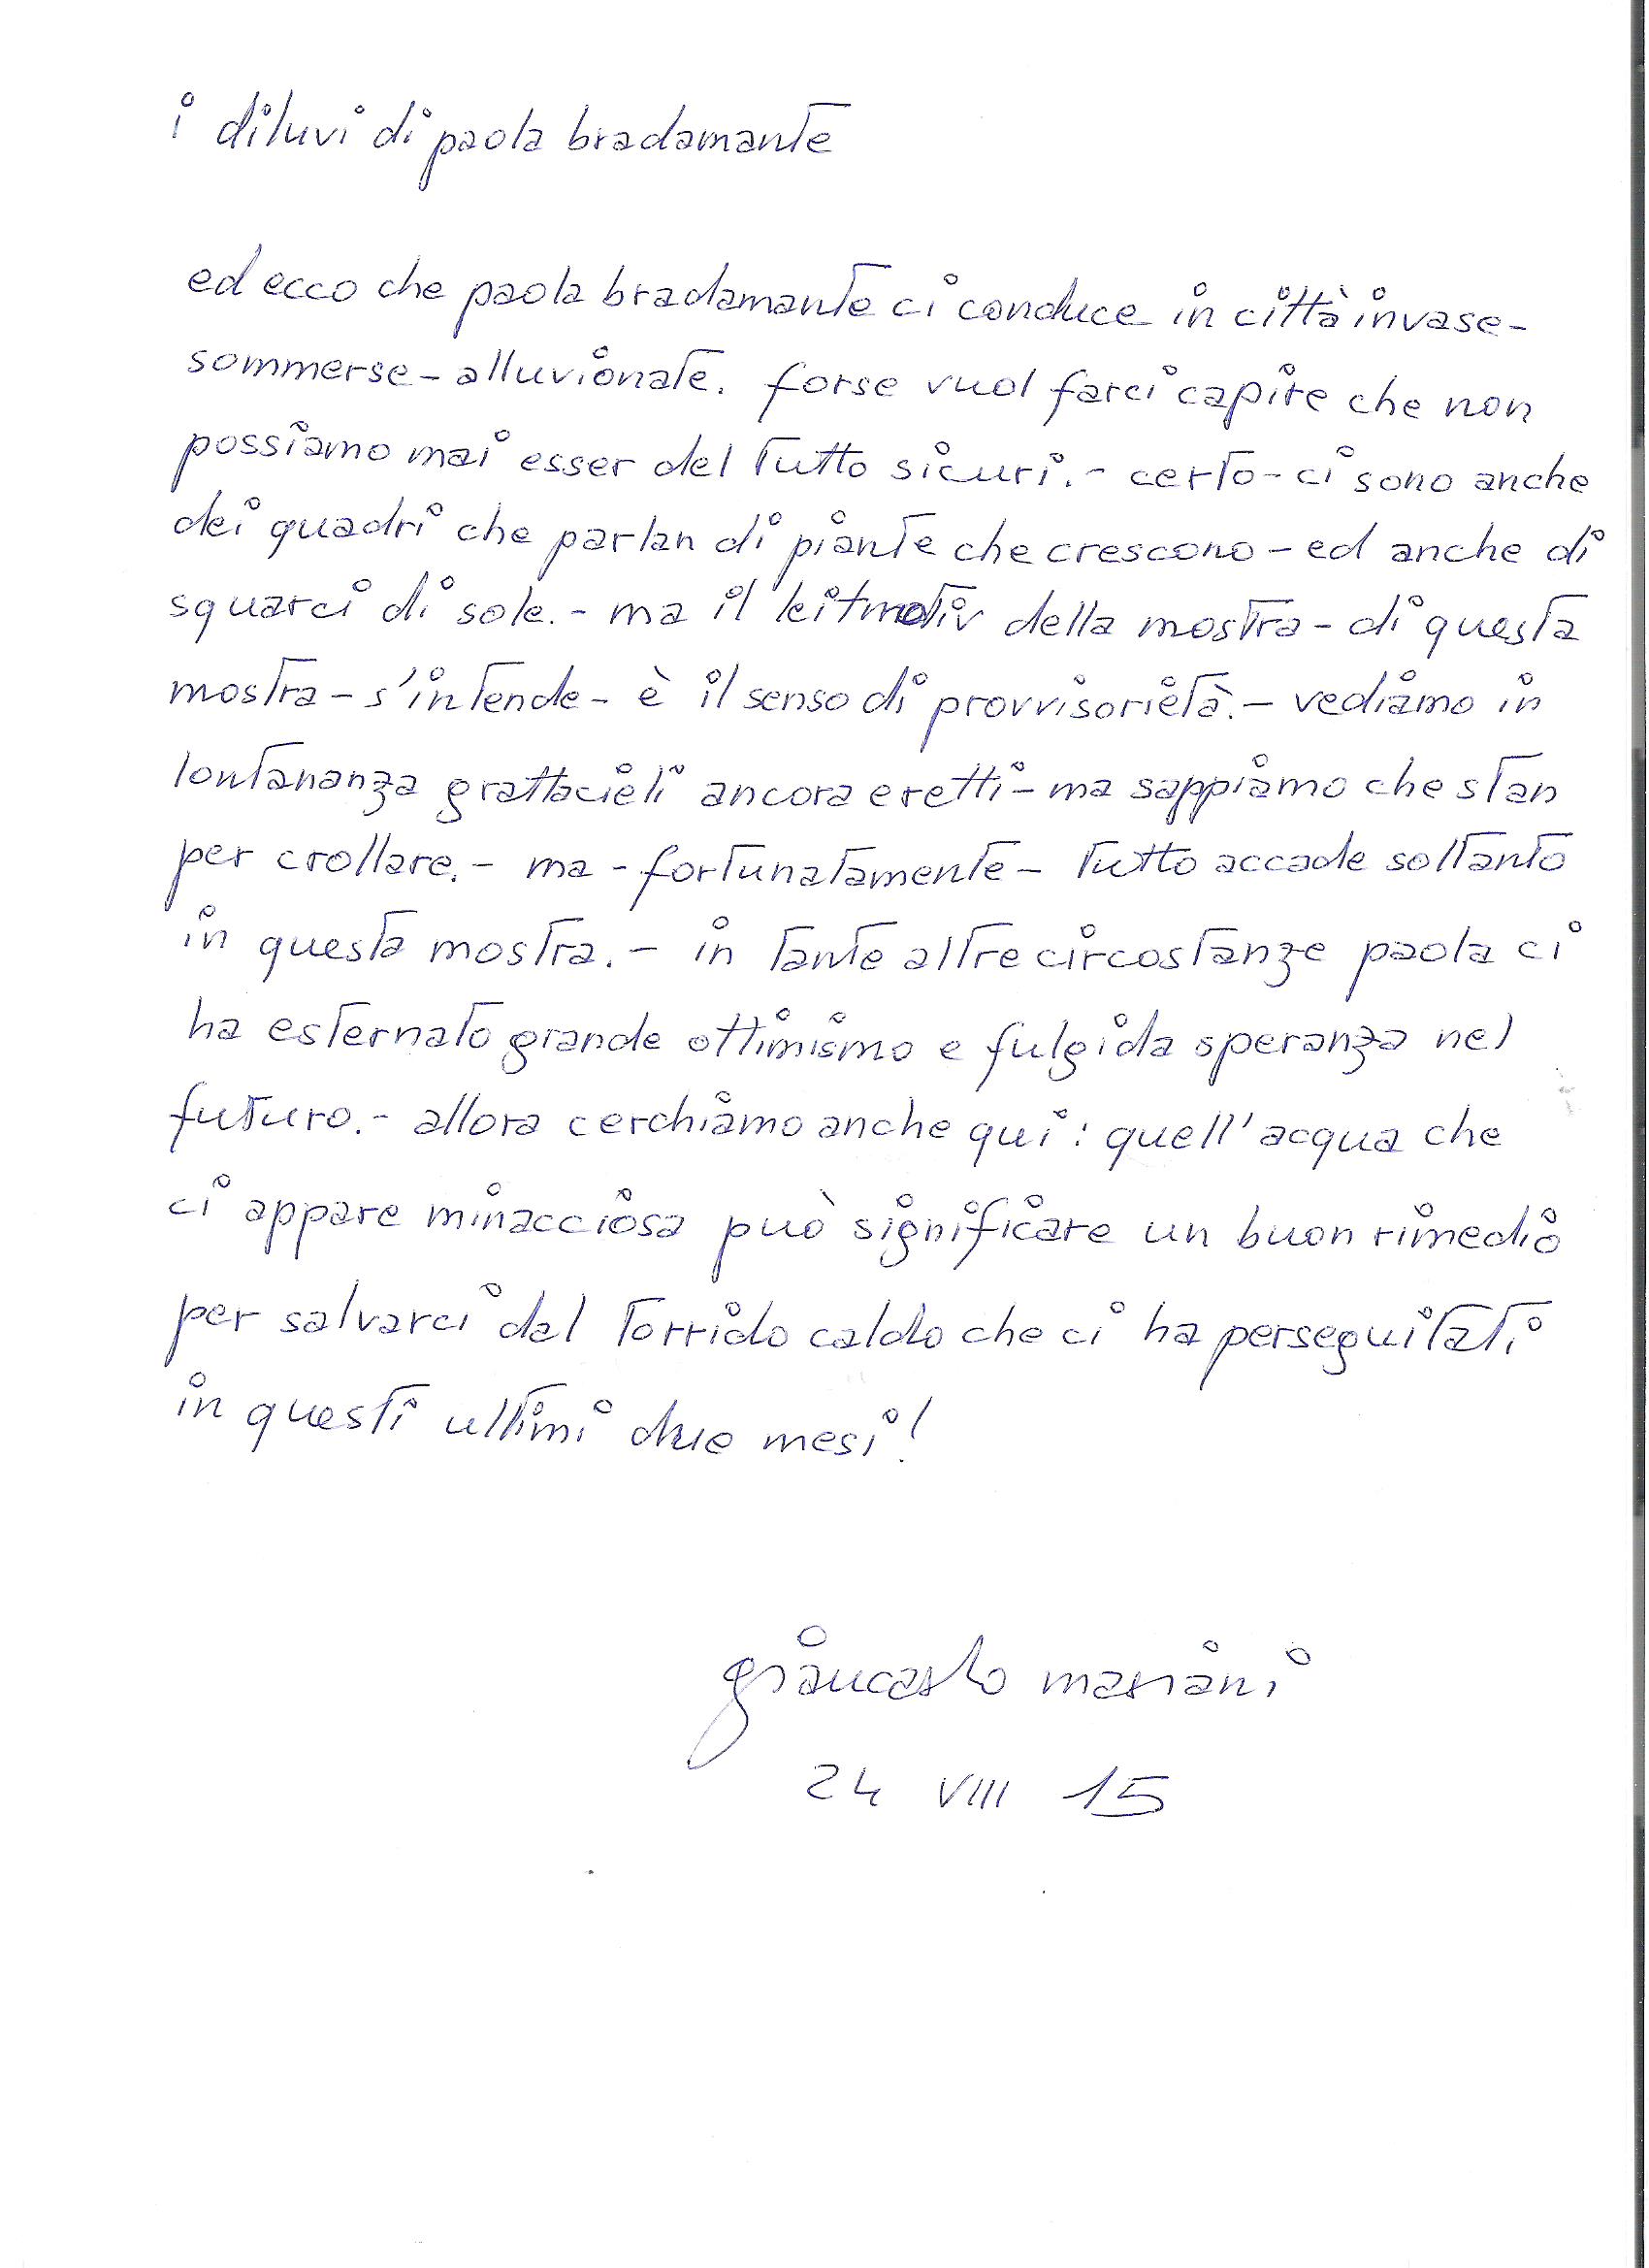 i diluvi di paola bradamante
ed ecco che paola bradamante ci conduce in città invase-
sommerse-alluvionate. forse vuol farci capire che non
possiamo mai esser del tutto sicuri.- certo-ci sono anche
dei quadri che parlan di piante che crescono-ed anche di
squarci di sole.- ma il leitmotiv della mostra-di questa
mostra-s'intende- è il senso di provvisorietà.- vediamo in
lontananza grattacieli ancora eretti-ma sappiamo che stan
per crollare.- ma -fortunatamente- tutto accade soltanto
in questa mostra.- in tante altre circostanze paola ci
ha esternato grande ottimismo e fulgida speranza nel
futuro.- allora cerchiamo anche qui: quell'acqua che
ci appare minacciosa può significare un buon rimedio
per salvarci dal torrido caldo che ci ha perseguitati
in questi ultimi due mesi!
giancarlo mariani
24 VIII 15